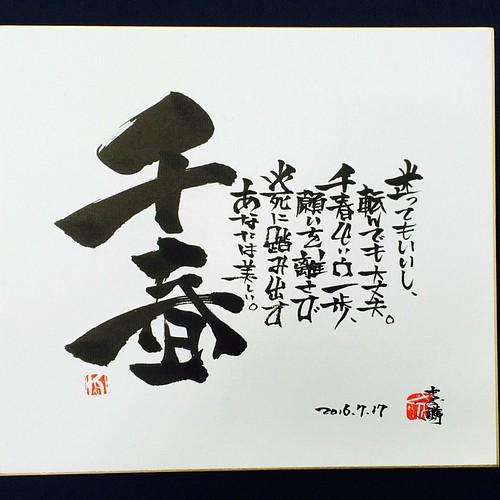 迷ってもいいし、
転んでも大丈夫。
千春らしい一歩、
願いを離さず
必死に踏み出す
あなたは美しい。
千春
2016.7.17